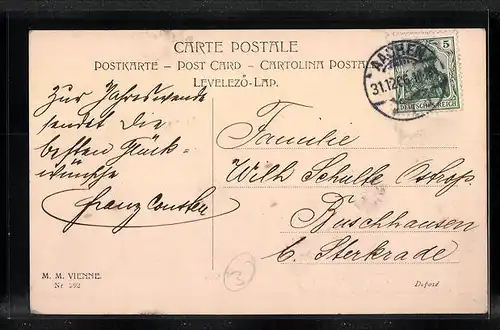 CARTE POSTALE
POSTKARTE – POST CARD – CARTOLINA POSTALE
LEVELEZŐ-LAP.
AACHEN
31.12.06
5
DEUTSCHES REICH
Zur Jahreswende
sendet die
besten Glück-
wünsche
Franz
Familie
Wilh Schulte
Buschhausen
b. Sterkrade
M. M. VIENNE.
Nr 292
3
Déposé